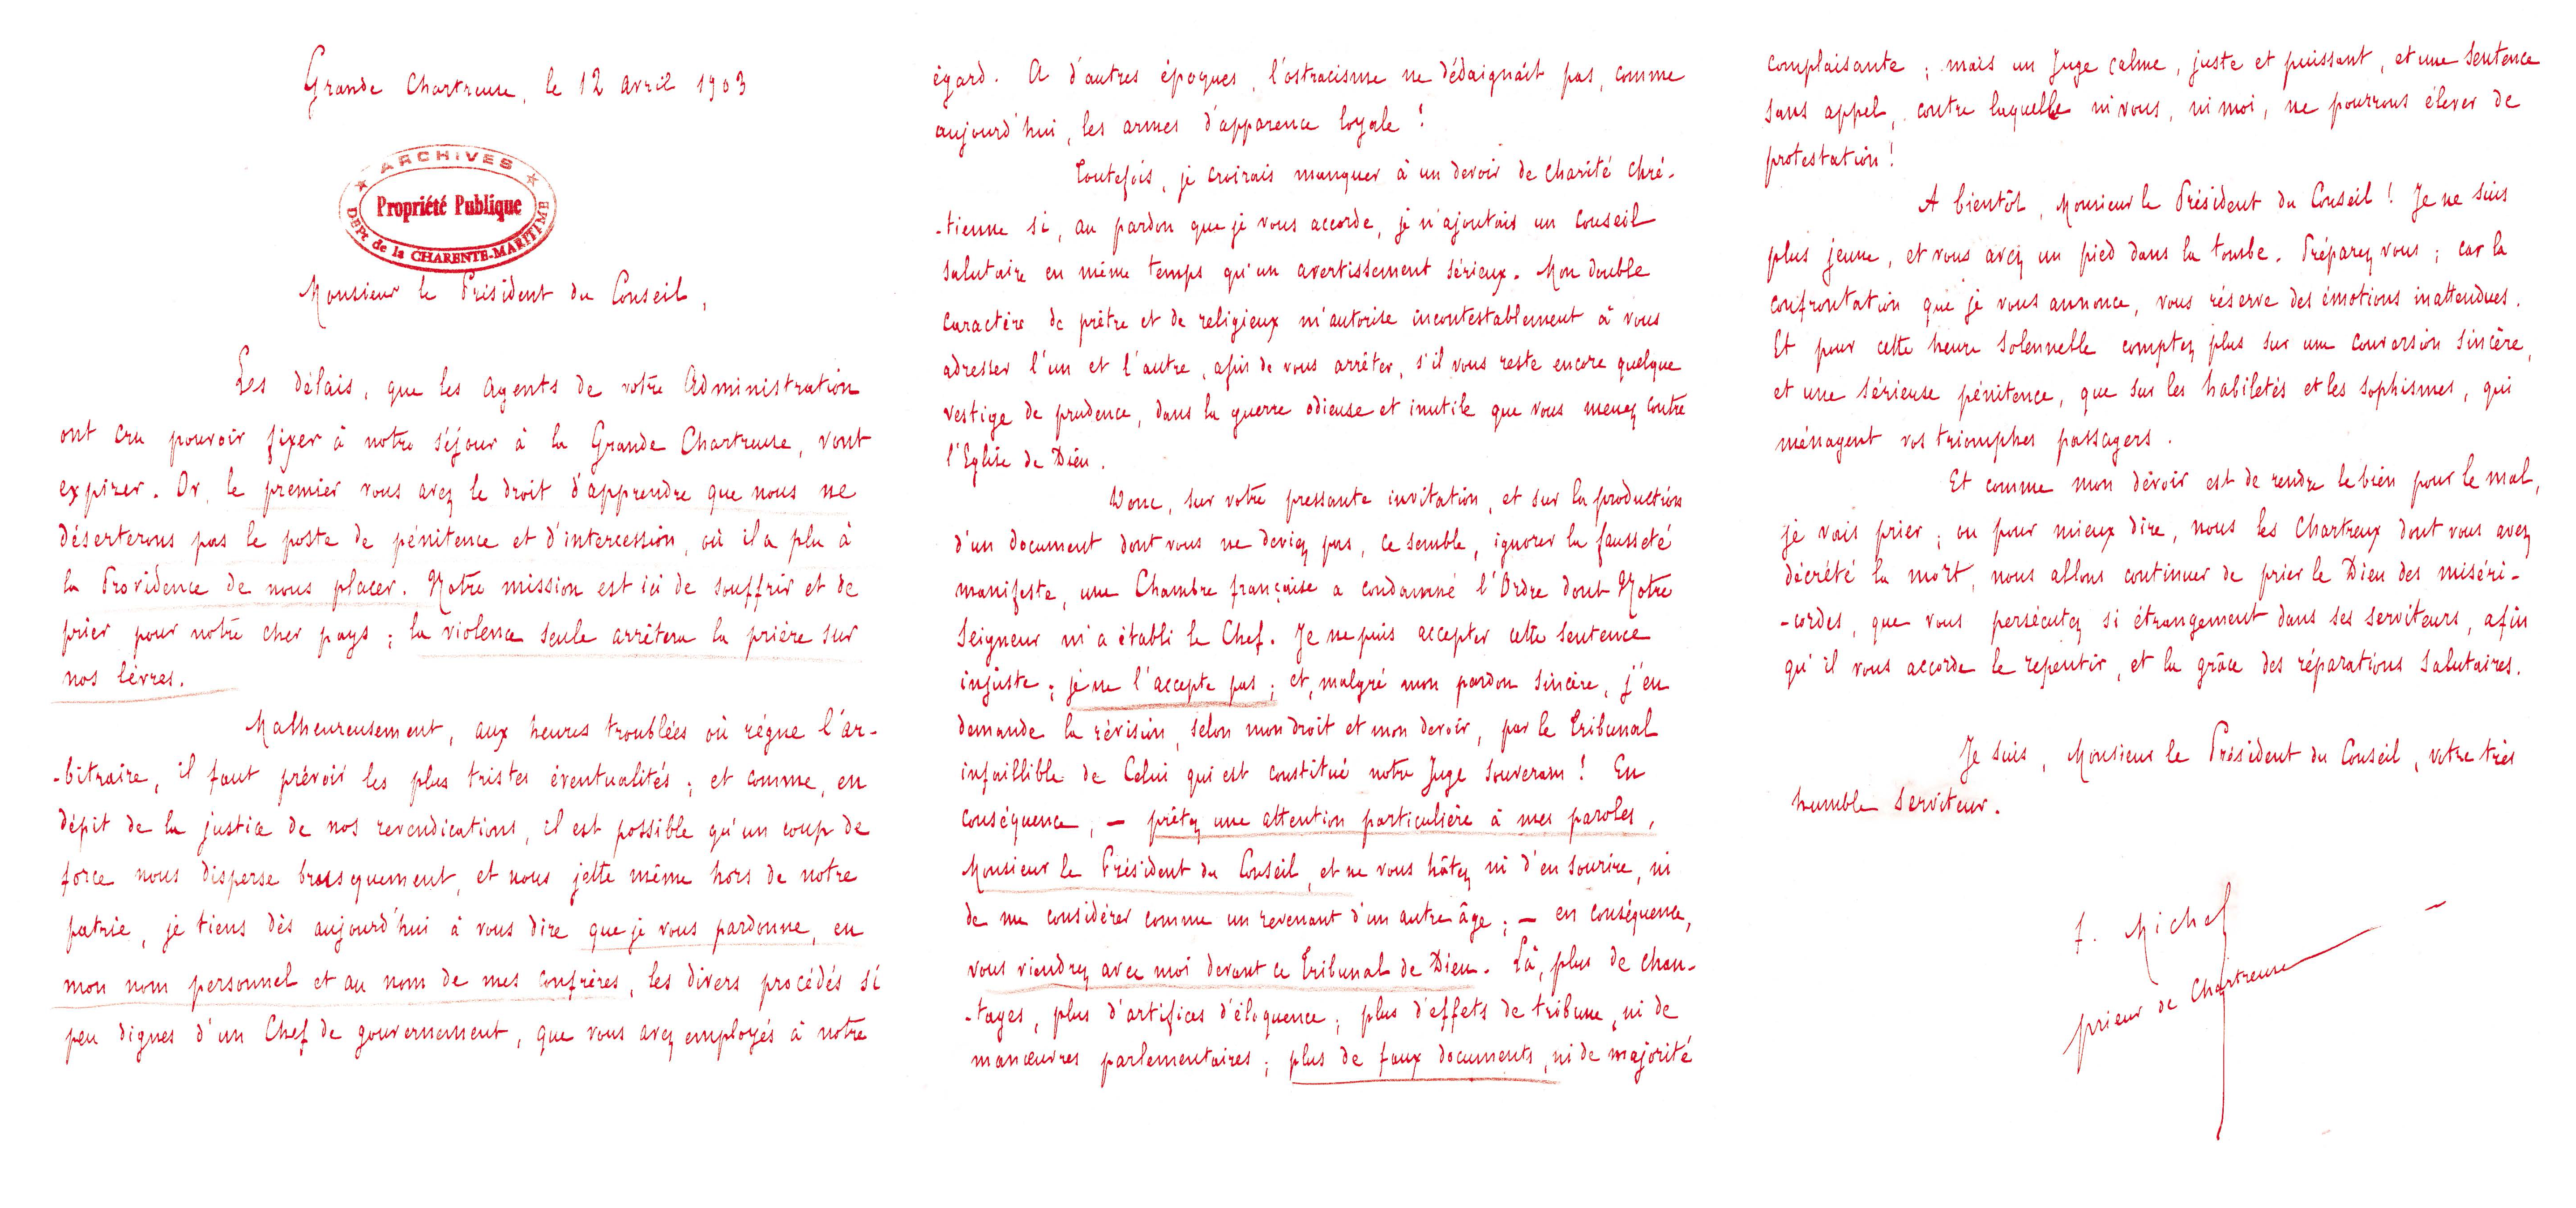 Grande Chartreuse, le 12 avril 1903
ARCHIVES
Propriété Publique
DEPt de la CHARENTE-MARITIME
Monsieur le Président du Conseil,
Les délais, que les Agents de votre Administration
ont cru pouvoir fixer à notre séjour à la Grande Chartreuse, vont
expirer. Or, le premier vous avez le droit d'apprendre que nous ne
déserterons pas le poste de pénitence et d'intercession, où il a plu à
la Providence de nous placer. Notre mission est ici de souffrir et de
prier pour notre cher pays ; la violence seule arrêtera la prière sur
nos lèvres.
Malheureusement, aux heures troublées où règne l'ar-
-bitraire, il faut prévoir les plus tristes éventualités ; et comme, en
dépit de la justice de nos revendications, il est possible qu'un coup de
force nous disperse brusquement, et nous jette même hors de notre
patrie, je tiens dès aujourd'hui à vous dire que je vous pardonne, en
mon nom personnel et au nom de mes confrères, les divers procédés si
peu dignes d'un Chef de gouvernement, que vous avez employés à notre
égard. A d'autres époques, l'ostracisme ne dédaignait pas, comme
aujourd'hui, les armes d'apparence loyale !
Toutefois, je croirais manquer à un devoir de charité chré-
-tienne si, au pardon que je vous accorde, je n'ajoutais un conseil
salutaire en même temps qu'un avertissement sérieux. Mon double
caractère de prêtre et de religieux m'autorise incontestablement à vous
adresser l'un et l'autre, afin de vous arrêter, s'il vous reste encore quelque
vestige de prudence, dans la guerre odieuse et inutile que vous menez contre
l'Eglise de Dieu.
Donc, sur votre pressante invitation, et sur la production
d'un document dont vous ne deviez pas, ce semble, ignorer la fausseté
manifeste, une Chambre française a condamné l'Ordre dont Notre
Seigneur m'a établi le Chef. Je ne puis accepter cette sentence
injuste ; je ne l'accepte pas ; et, malgré mon pardon sincère, j'en
demande la révision, selon mon droit et mon devoir, par le Tribunal
infaillible de Celui qui est constitué notre Juge souverain ! En
conséquence, — prêtez une attention particulière à mes paroles,
Monsieur le Président du Conseil, et ne vous hâtez ni d'en sourire, ni
de me considérer comme un revenant d'un autre âge ; — en conséquence,
vous viendrez avec moi devant ce Tribunal de Dieu. Là, plus de chan-
-tages, plus d'artifices d'éloquence ; plus d'effets de tribune, ni de
manœuvres parlementaires ; plus de faux documents, ni de majorité
complaisante ; mais un Juge calme, juste et puissant, et une sentence
sans appel, contre laquelle ni vous, ni moi, ne pourrons élever de
protestation !
A bientôt, Monsieur le Président du Conseil ! Je ne suis
plus jeune, et vous avez un pied dans la tombe. Préparez vous ; car la
confrontation que je vous annonce, vous réserve des émotions inattendues.
Et pour cette heure solennelle comptez plus sur une conversion sincère,
et une sérieuse pénitence, que sur les habiletés et les sophismes, qui
ménagent vos triomphes passagers.
Et comme mon devoir est de rendre le bien pour le mal,
je vais prier ; ou pour mieux dire, nous les Chartreux dont vous avez
décrété la mort, nous allons continuer de prier le Dieu des miséri-
-cordes, que vous persécutez si étrangement dans ses serviteurs, afin
qu'il vous accorde le repentir, et la grâce des réparations salutaires.
Je suis, Monsieur le Président du Conseil, votre très
humble serviteur.
f. Michel
prieur de Chartreuse